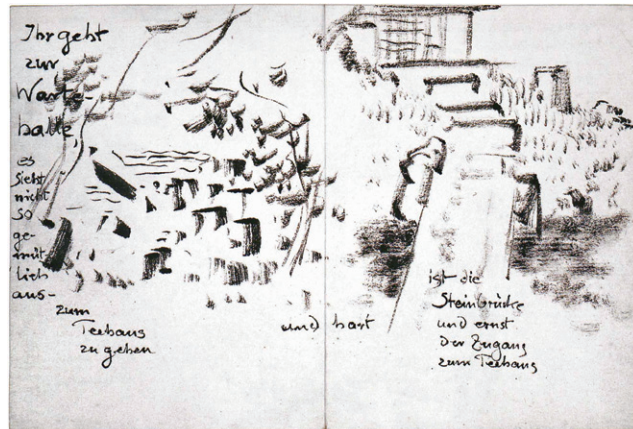 Ihr geht
zur
Warte-
halle,
es
sieht
nicht
so
ge-
müt
lich
aus-
zum
Teehaus
zu gehen
und hart
ist die
Steinbrücke
und ernst
der Zugang
zum Teehaus